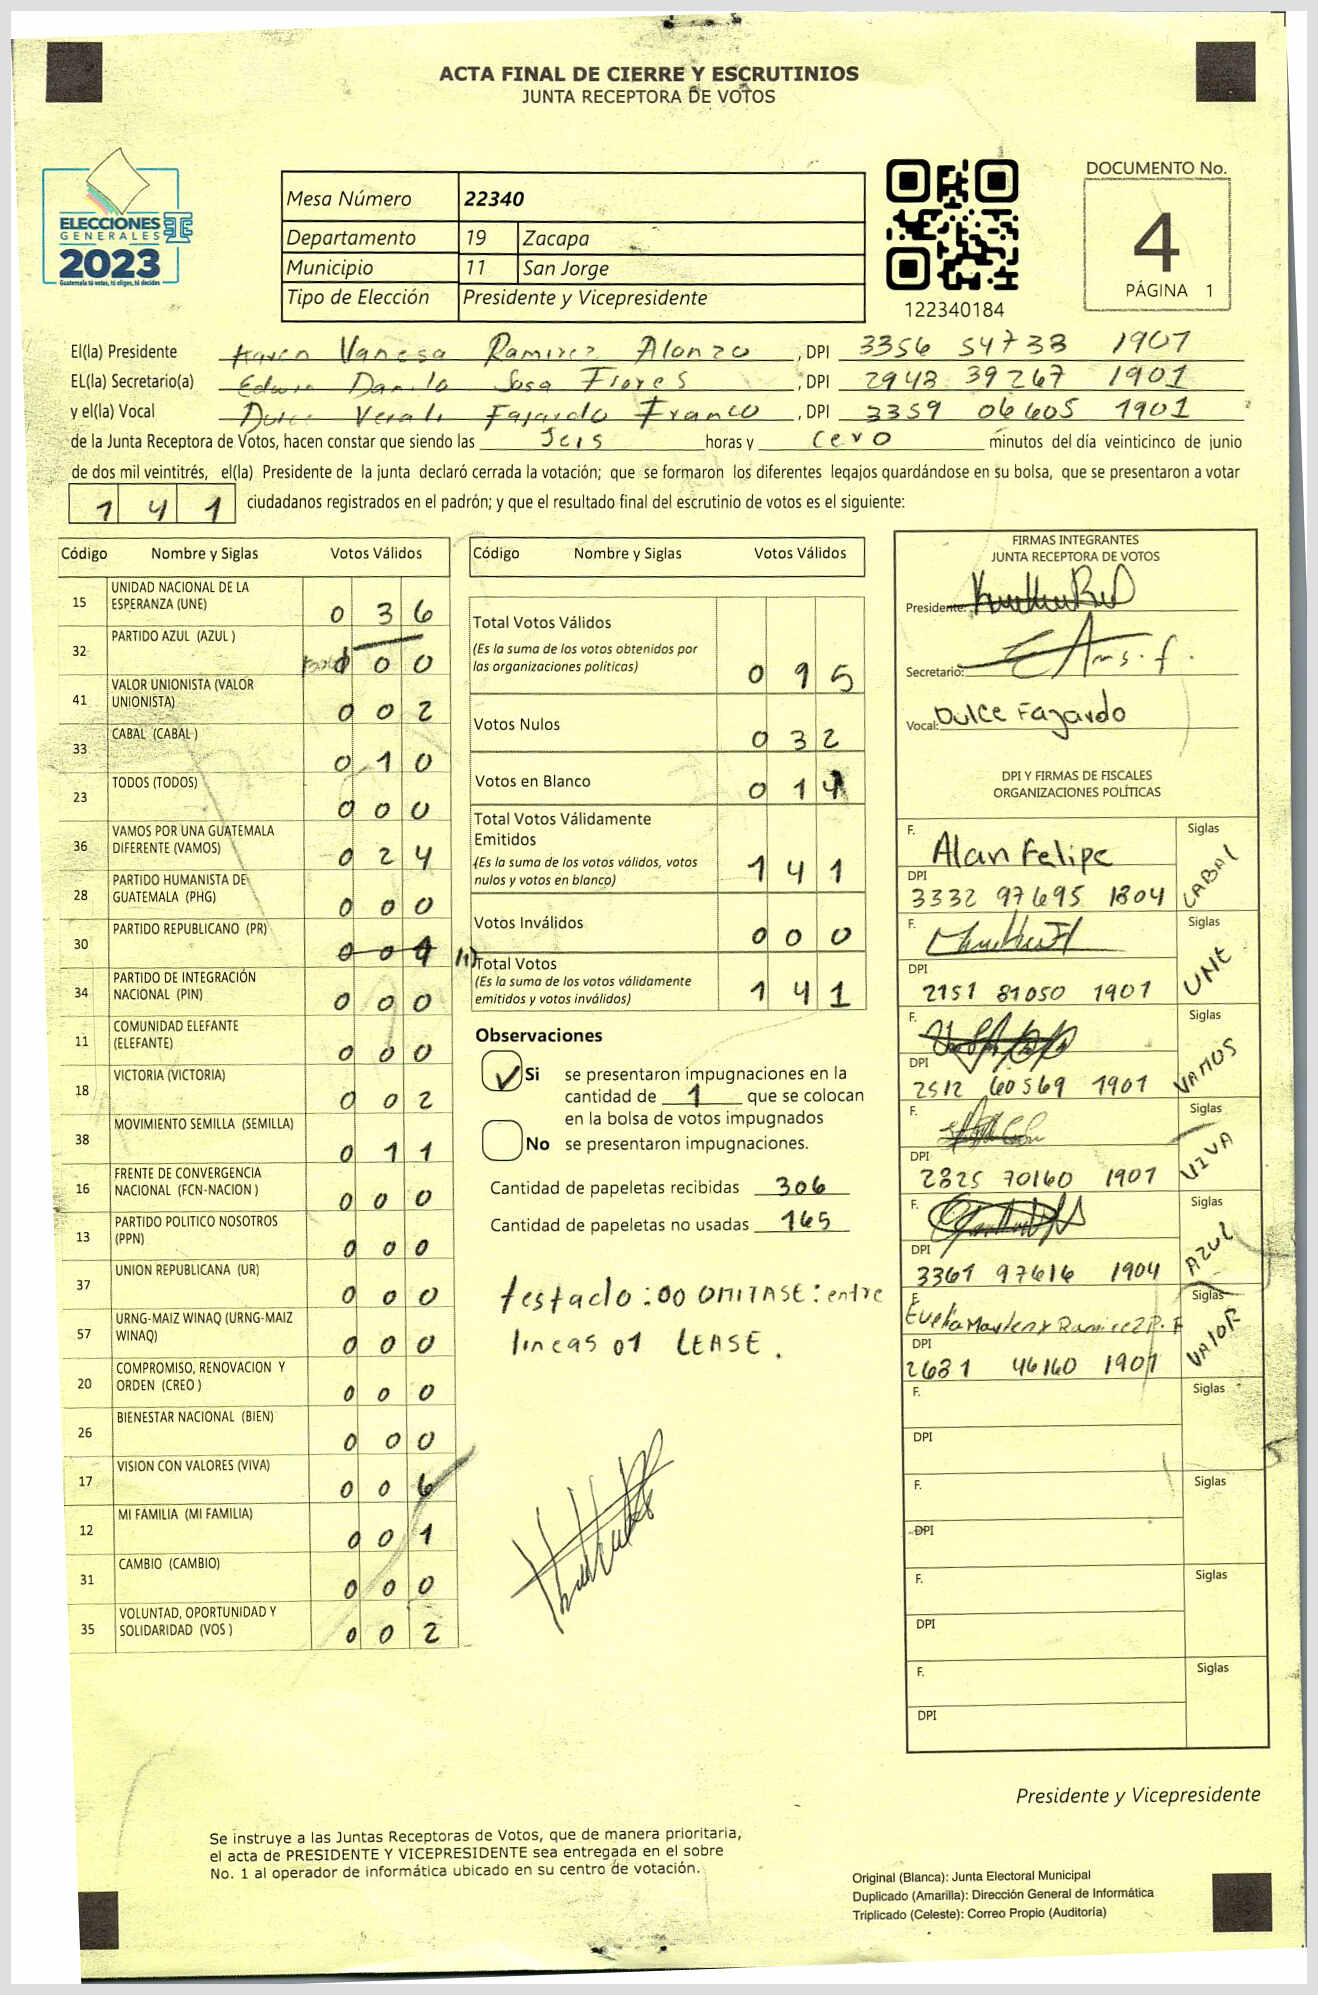 ACTA FINAL DE CIERRE Y ESCRUTINIOS
JUNTA RECEPTORA DE VOTOS
ELECCIONES
GENERALES
2023
Guatemala tú votas, tú eliges, tú decides
Mesa Número 22340
Departamento 19 Zacapa
Municipio 11 San Jorge
Tipo de Elección Presidente y Vicepresidente
122340184
DOCUMENTO No.
4
PÁGINA 1
El(la) Presidente Karen Vanesa Ramirez Alonzo, DPI 3356 54738 1901
EL(la) Secretario(a) Edwin Danilo Sosa Flores, DPI 2948 39267 1901
y el(la) Vocal Dulce Fajardo Franco, DPI 3359 06605 1901
de la Junta Receptora de Votos, hacen constar que siendo las Seis horas y cero minutos del día veinticinco de junio
de dos mil veintitrés, el(la) Presidente de la junta declaró cerrada la votación; que se formaron los diferentes legajos guardándose en su bolsa, que se presentaron a votar
141 ciudadanos registrados en el padrón; y que el resultado final del escrutinio de votos es el siguiente:
Código Nombre y Siglas Votos Válidos
15 UNIDAD NACIONAL DE LA ESPERANZA (UNE) 036
32 PARTIDO AZUL (AZUL ) 000
41 VALOR UNIONISTA (VALOR UNIONISTA) 002
33 CABAL (CABAL ) 010
23 TODOS (TODOS) 000
36 VAMOS POR UNA GUATEMALA DIFERENTE (VAMOS) 024
28 PARTIDO HUMANISTA DE GUATEMALA (PHG) 000
30 PARTIDO REPUBLICANO (PR) 00
34 PARTIDO DE INTEGRACIÓN NACIONAL (PIN) 000
11 COMUNIDAD ELEFANTE (ELEFANTE) 000
18 VICTORIA (VICTORIA) 002
38 MOVIMIENTO SEMILLA (SEMILLA) 011
16 FRENTE DE CONVERGENCIA NACIONAL (FCN-NACION ) 000
13 PARTIDO POLITICO NOSOTROS (PPN) 000
37 UNION REPUBLICANA (UR) 000
57 URNG-MAIZ WINAQ (URNG-MAIZ WINAQ) 000
20 COMPROMISO, RENOVACION Y ORDEN (CREO ) 000
26 BIENESTAR NACIONAL (BIEN) 000
17 VISION CON VALORES (VIVA) 006
12 MI FAMILIA (MI FAMILIA) 001
31 CAMBIO (CAMBIO) 000
35 VOLUNTAD, OPORTUNIDAD Y SOLIDARIDAD (VOS ) 002
Código Nombre y Siglas Votos Válidos
Total Votos Válidos
(Es la suma de los votos obtenidos por
las organizaciones políticas) 095
Votos Nulos 032
Votos en Blanco 014
Total Votos Válidamente
Emitidos
(Es la suma de los votos válidos, votos
nulos y votos en blanco) 141
Votos Inválidos 000
Total Votos
(Es la suma de los votos válidamente
emitidos y votos inválidos) 141
Observaciones
Si se presentaron impugnaciones en la
cantidad de 1 que se colocan
en la bolsa de votos impugnados
No se presentaron impugnaciones.
Cantidad de papeletas recibidas 306
Cantidad de papeletas no usadas 165
testado: 00 OMITASE: entre
lineas 01 LEASE.
FIRMAS INTEGRANTES
JUNTA RECEPTORA DE VOTOS
Presidente:
Secretario:
Vocal: Dulce Fajardo
DPI Y FIRMAS DE FISCALES
ORGANIZACIONES POLÍTICAS
F. Alan Felipe Siglas CABAL
DPI 3332 97695 1804
F. Siglas UNE
DPI 2151 81050 1901
F. Siglas VAMOS
DPI 2512 60569 1901
F. Siglas VIVA
DPI 2825 70160 1901
F. Siglas AZUL
DPI 3361 97616 1904
F. Ramirez Siglas VALOR
DPI 2631 46160 1901
F. Siglas
DPI
F. Siglas
DPI
F. Siglas
DPI
F. Siglas
DPI
Presidente y Vicepresidente
Se instruye a las Juntas Receptoras de Votos, que de manera prioritaria,
el acta de PRESIDENTE Y VICEPRESIDENTE sea entregada en el sobre
No. 1 al operador de informática ubicado en su centro de votación.
Original (Blanca): Junta Electoral Municipal
Duplicado (Amarilla): Dirección General de Informática
Triplicado (Celeste): Correo Propio (Auditoría)